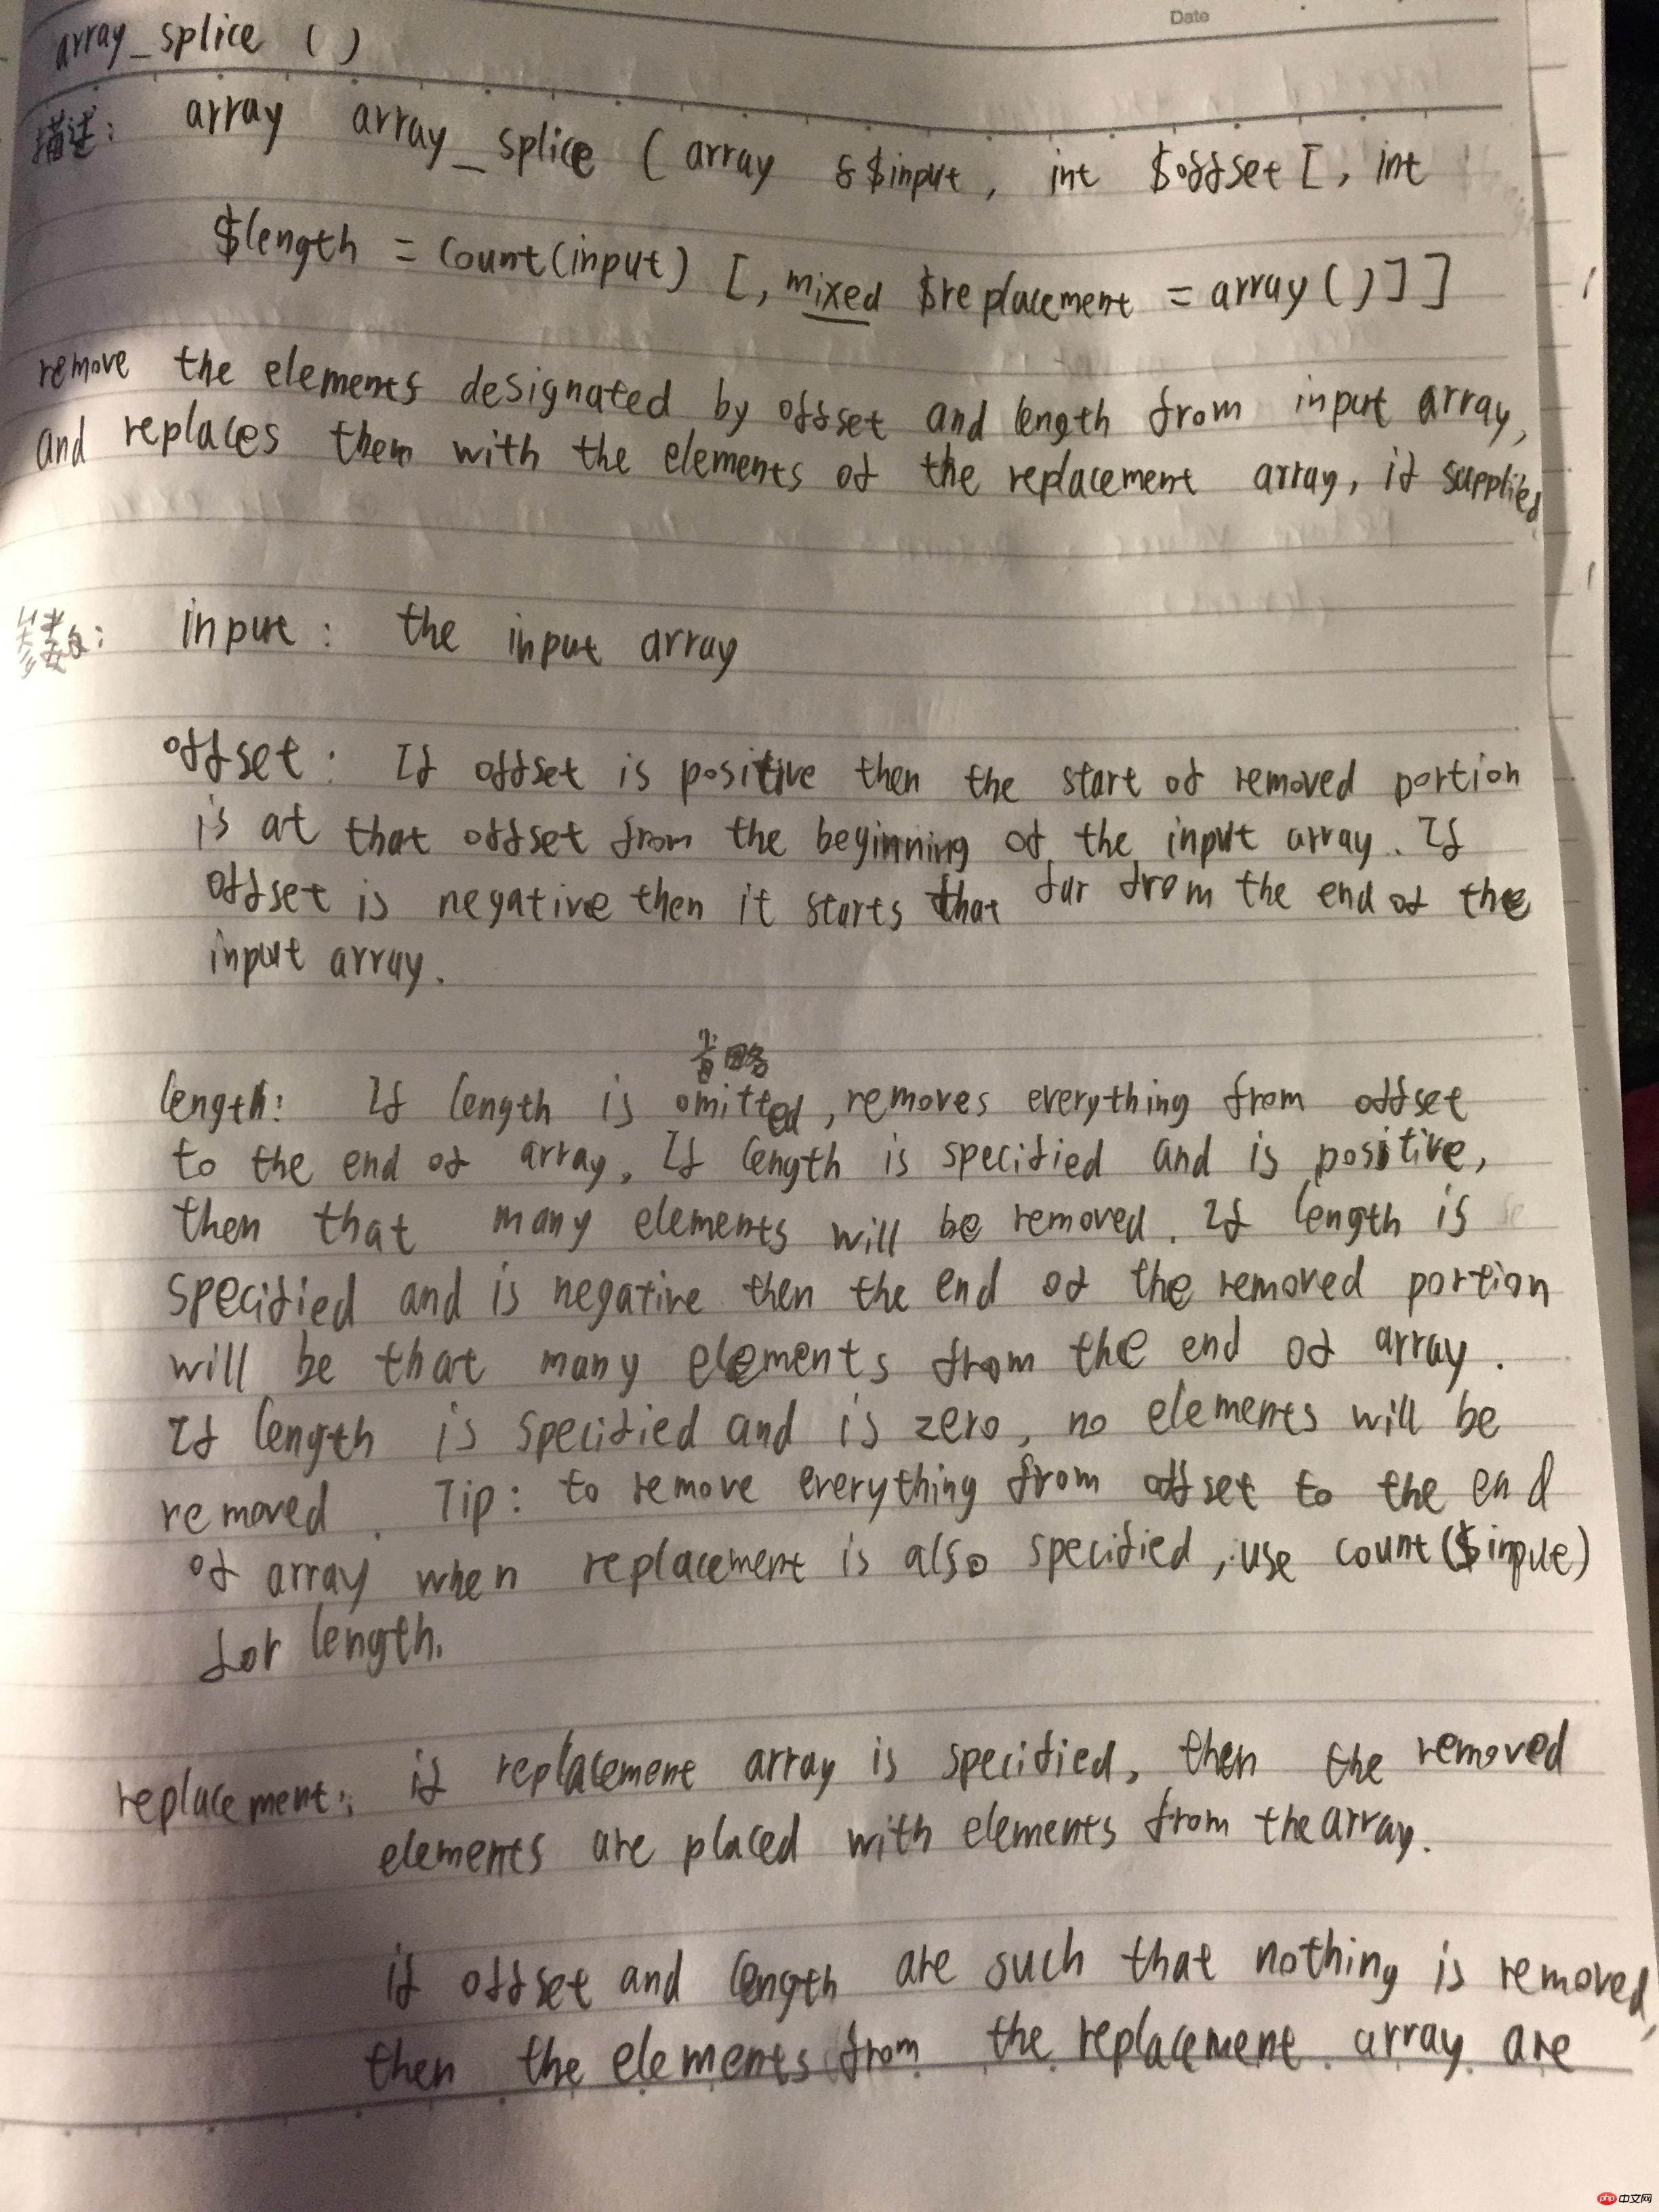 Date
array_splice ( )
描述: array array_splice ( array &$input, int $offset [, int
$length = count(input) [, mixed $replacement = array ( ) ] ]
remove the elements designated by offset and length from input array,
and replaces them with the elements of the replacement array, if supplied.
参数: input: the input array
offset: If offset is positive then the start of removed portion
is at that offset from the beginning of the input array. If
offset is negative then it starts that far from the end of the
input array.
省略
length: If length is omitted, removes everything from offset
to the end of array. If length is specified and is positive,
then that many elements will be removed. If length is
specified and is negative then the end of the removed portion
will be that many elements from the end of array.
If length is specified and is zero, no elements will be
removed. Tip: to remove everything from offset to the end
of array when replacement is also specified, use count($input)
for length.
replacement: if replacement array is specified, then the removed
elements are placed with elements from the array.
if offset and length are such that nothing is removed,
then the elements from the replacement array are
php中文网